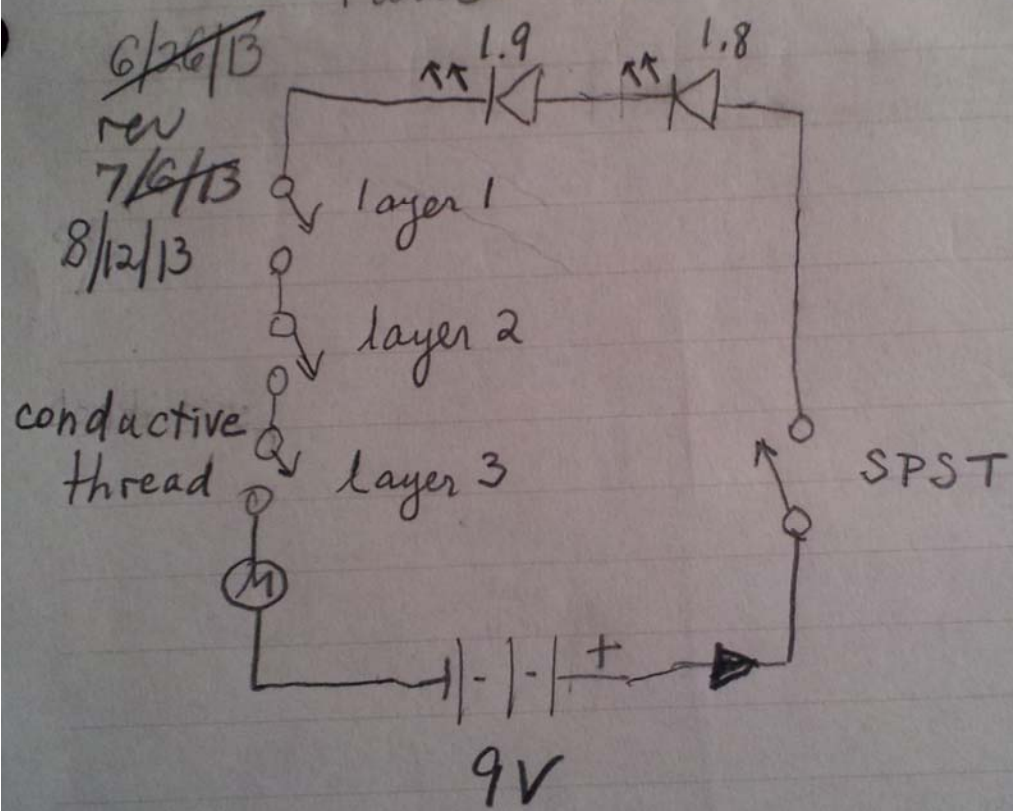 6/26/13
rev
7/6/13
8/12/13
1.9
1.8
layer 1
layer 2
conductive
thread
layer 3
SPST
M
+
9V